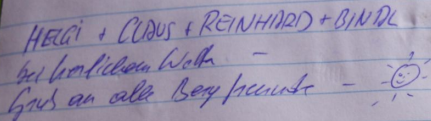 HELGI + CLAUS + REINHARD + BINDL
bei herrlichem Wetter –
Gruß an alle Bergfreunde –